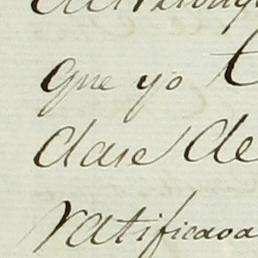 que yo
clase de
ratificada